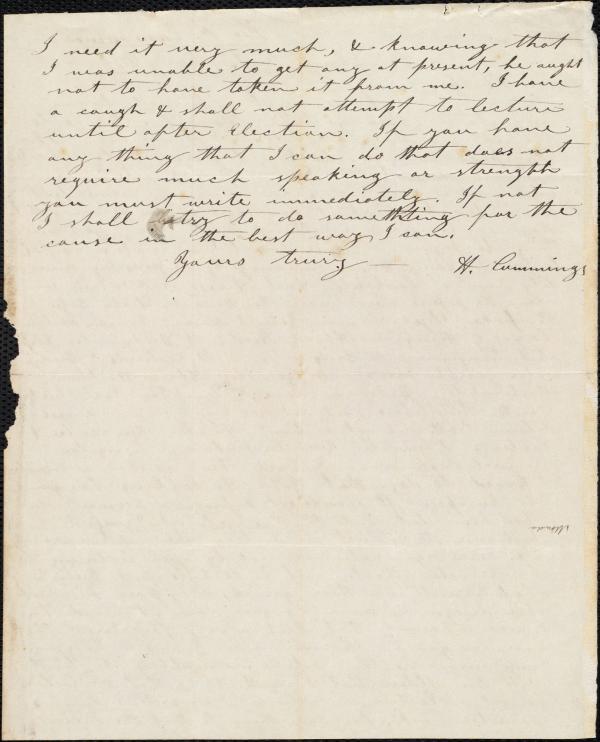 I need it very much, & knowing that
I was unable to get any at present, he aught
not to have taken it from me. I have
a cough & shall not attempt to lecture
until after Election. If you have
any thing that I can do that does not
require much speaking or strength
you must write immediately. If not
I shall try to do something for the
cause in the best way I can.
Yours truly —
H. Cummings